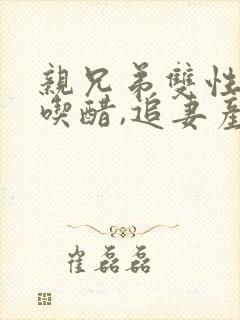 親兄弟雙性
喫醋,追妻
崔磊磊